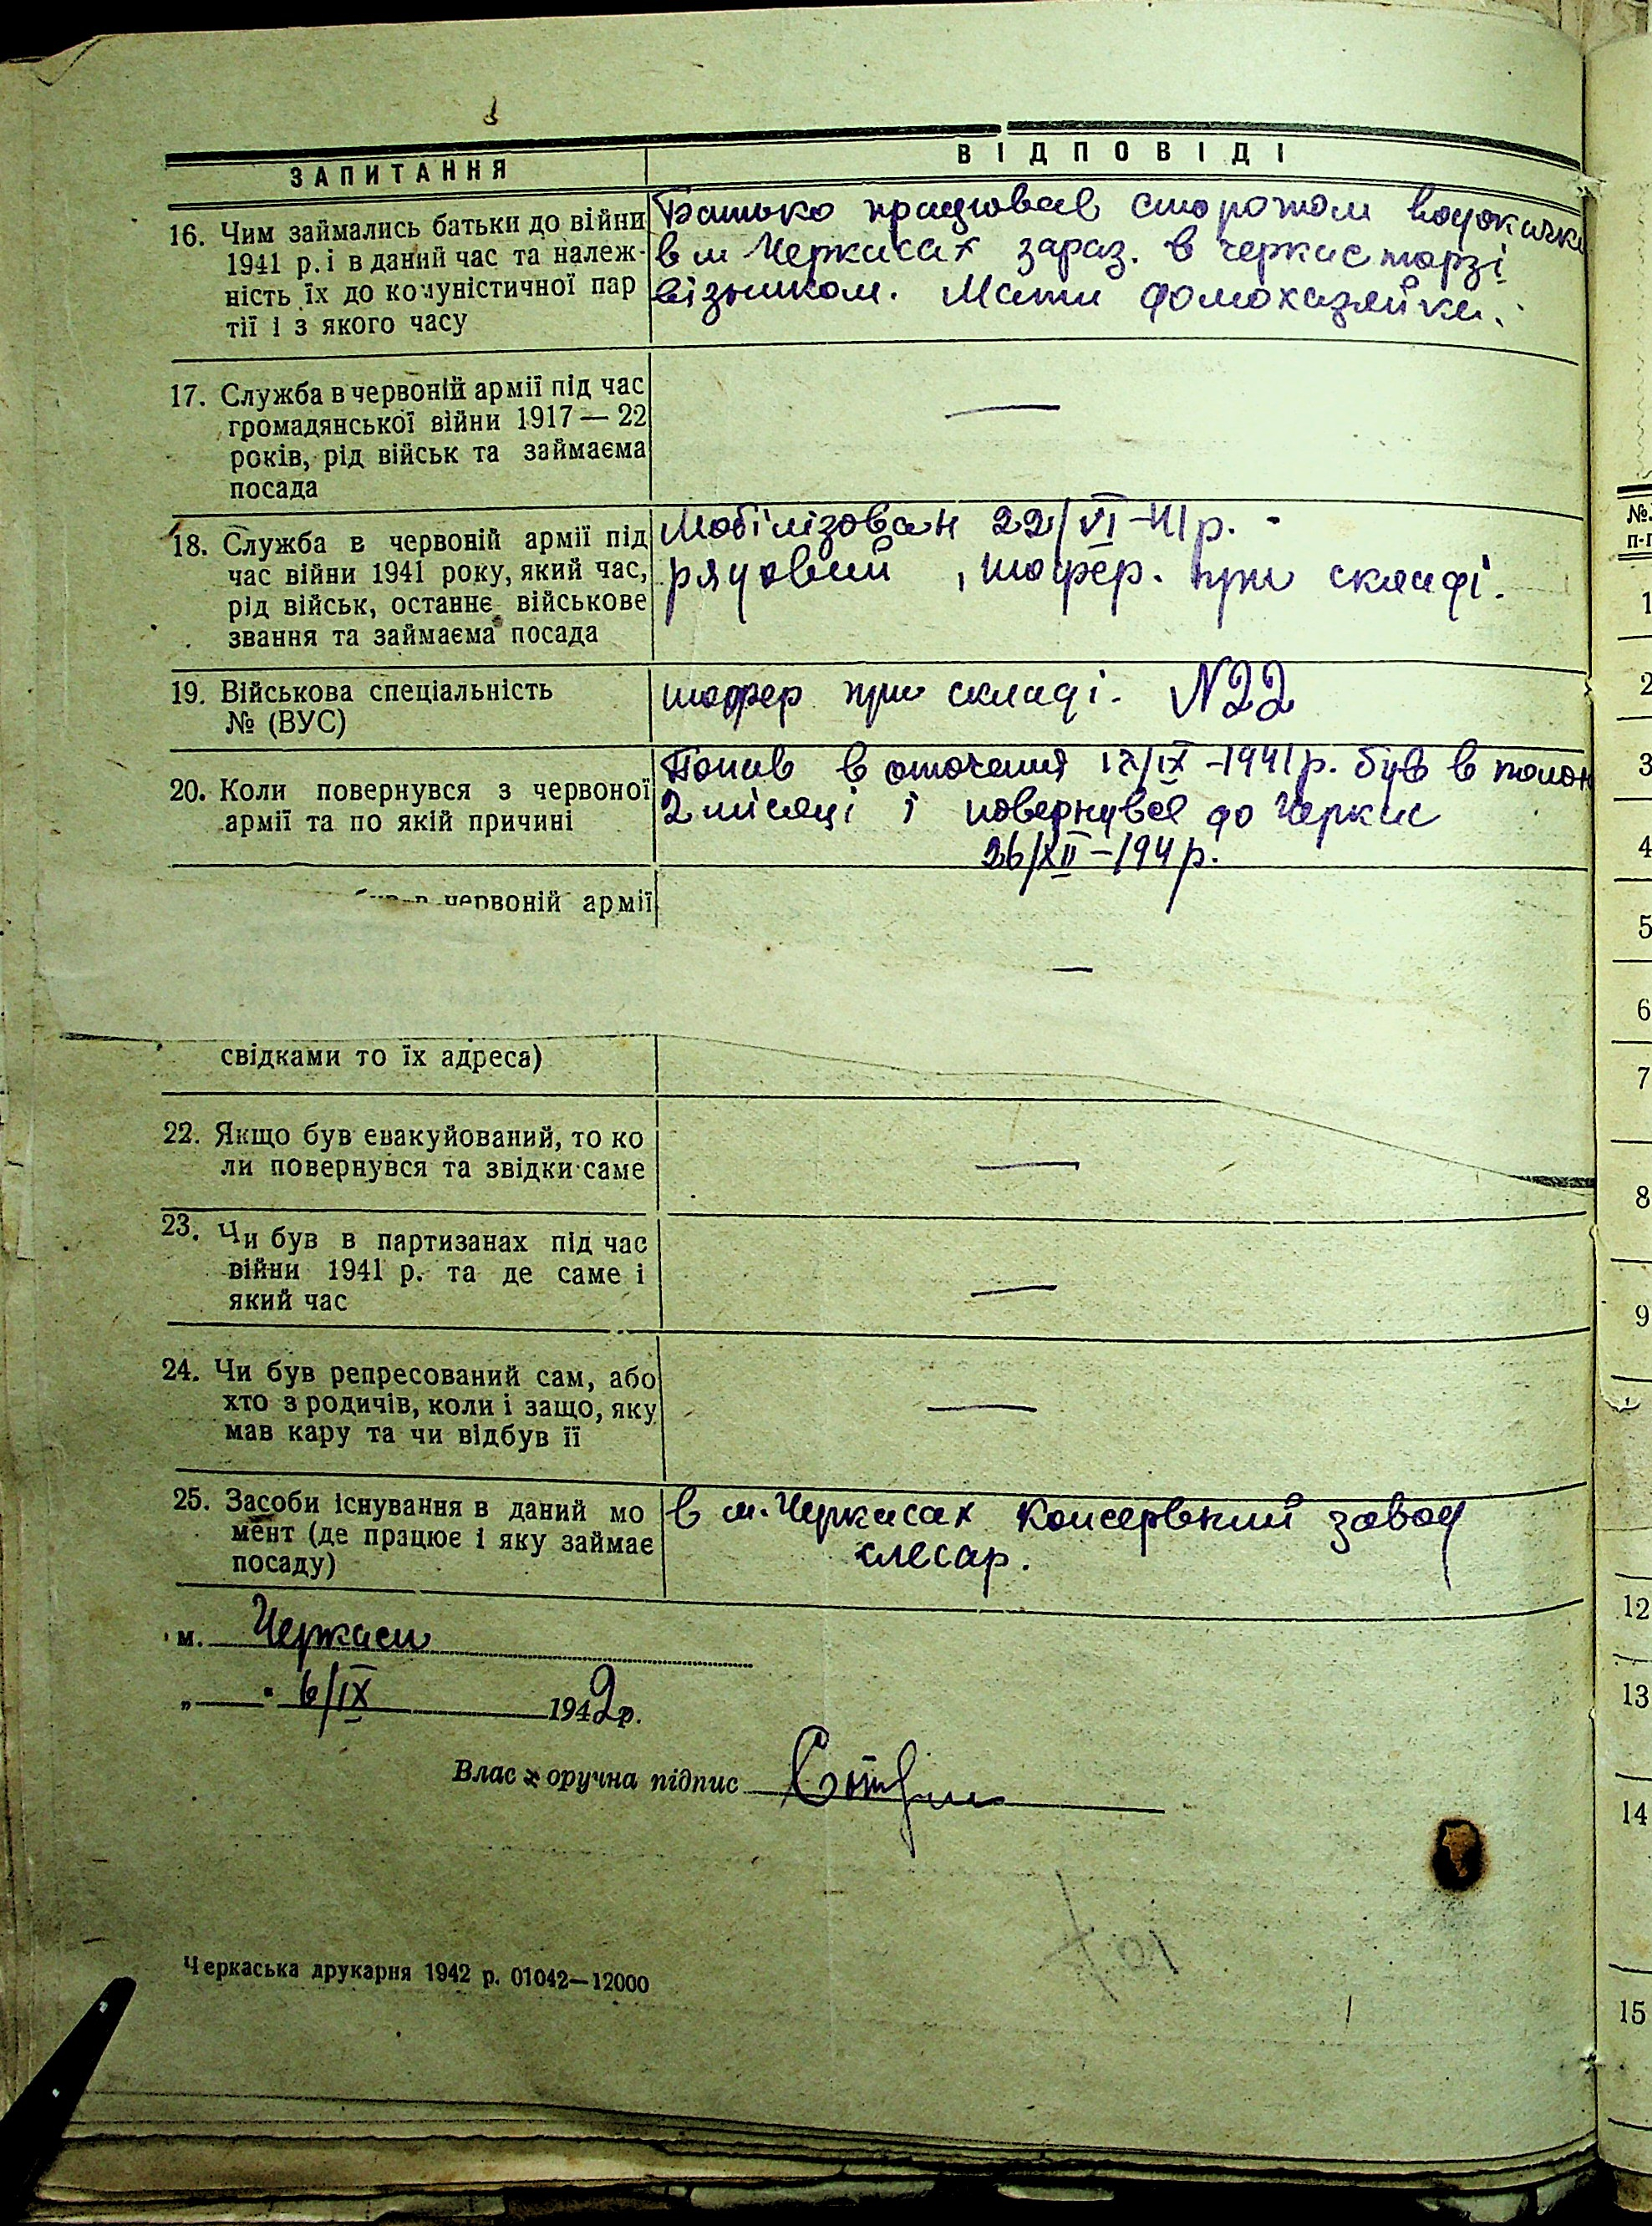 ЗАПИТАННЯ
ВІДПОВІДІ
16. Чим займались батьки до війни
1941 р. і в даний час та належ-
ність їх до комуністичної пар
тії і з якого часу
Батько працював сторожом водокачки
в м Черкасах зараз. в черкас торзі
візником. Мати домохазяйка.
17. Служба в червоній армії під час
громадянської війни 1917 — 22
років, рід військ та займаєма
посада
—
18. Служба в червоній армії під
час війни 1941 року, який час,
рід військ, останнє військове
звання та займаєма посада
Мобілізован 22/VI-41р.
рядовий, шофер. при складі.
19. Військова спеціальність
№ (ВУС)
шофер при складі. N22
20. Коли повернувся з червоної
армії та по якій причині
Попав в оточення /IX-1941р. був в полон
2 місяці і повернувся до Черкас
26/XII-194р.
червоній армії
—
свідками то їх адреса)
22. Якщо був евакуйований, то ко
ли повернувся та звідки саме
—
23. Чи був в партизанах під час
війни 1941 р. та де саме і
який час
—
24. Чи був репресований сам, або
хто з родичів, коли і защо, яку
мав кару та чи відбув її
—
25. Засоби існування в даний мо
мент (де працює і яку займає
посаду)
в м. Черкасах Консервний завод
слесар.
м. Черкаси
„ 6/IX 1942р.
Власноручна підпис
Черкаська друкарня 1942 р. 01042—12000
№
п-п
1
2
3
4
5
6
7
8
9
12
13
14
15